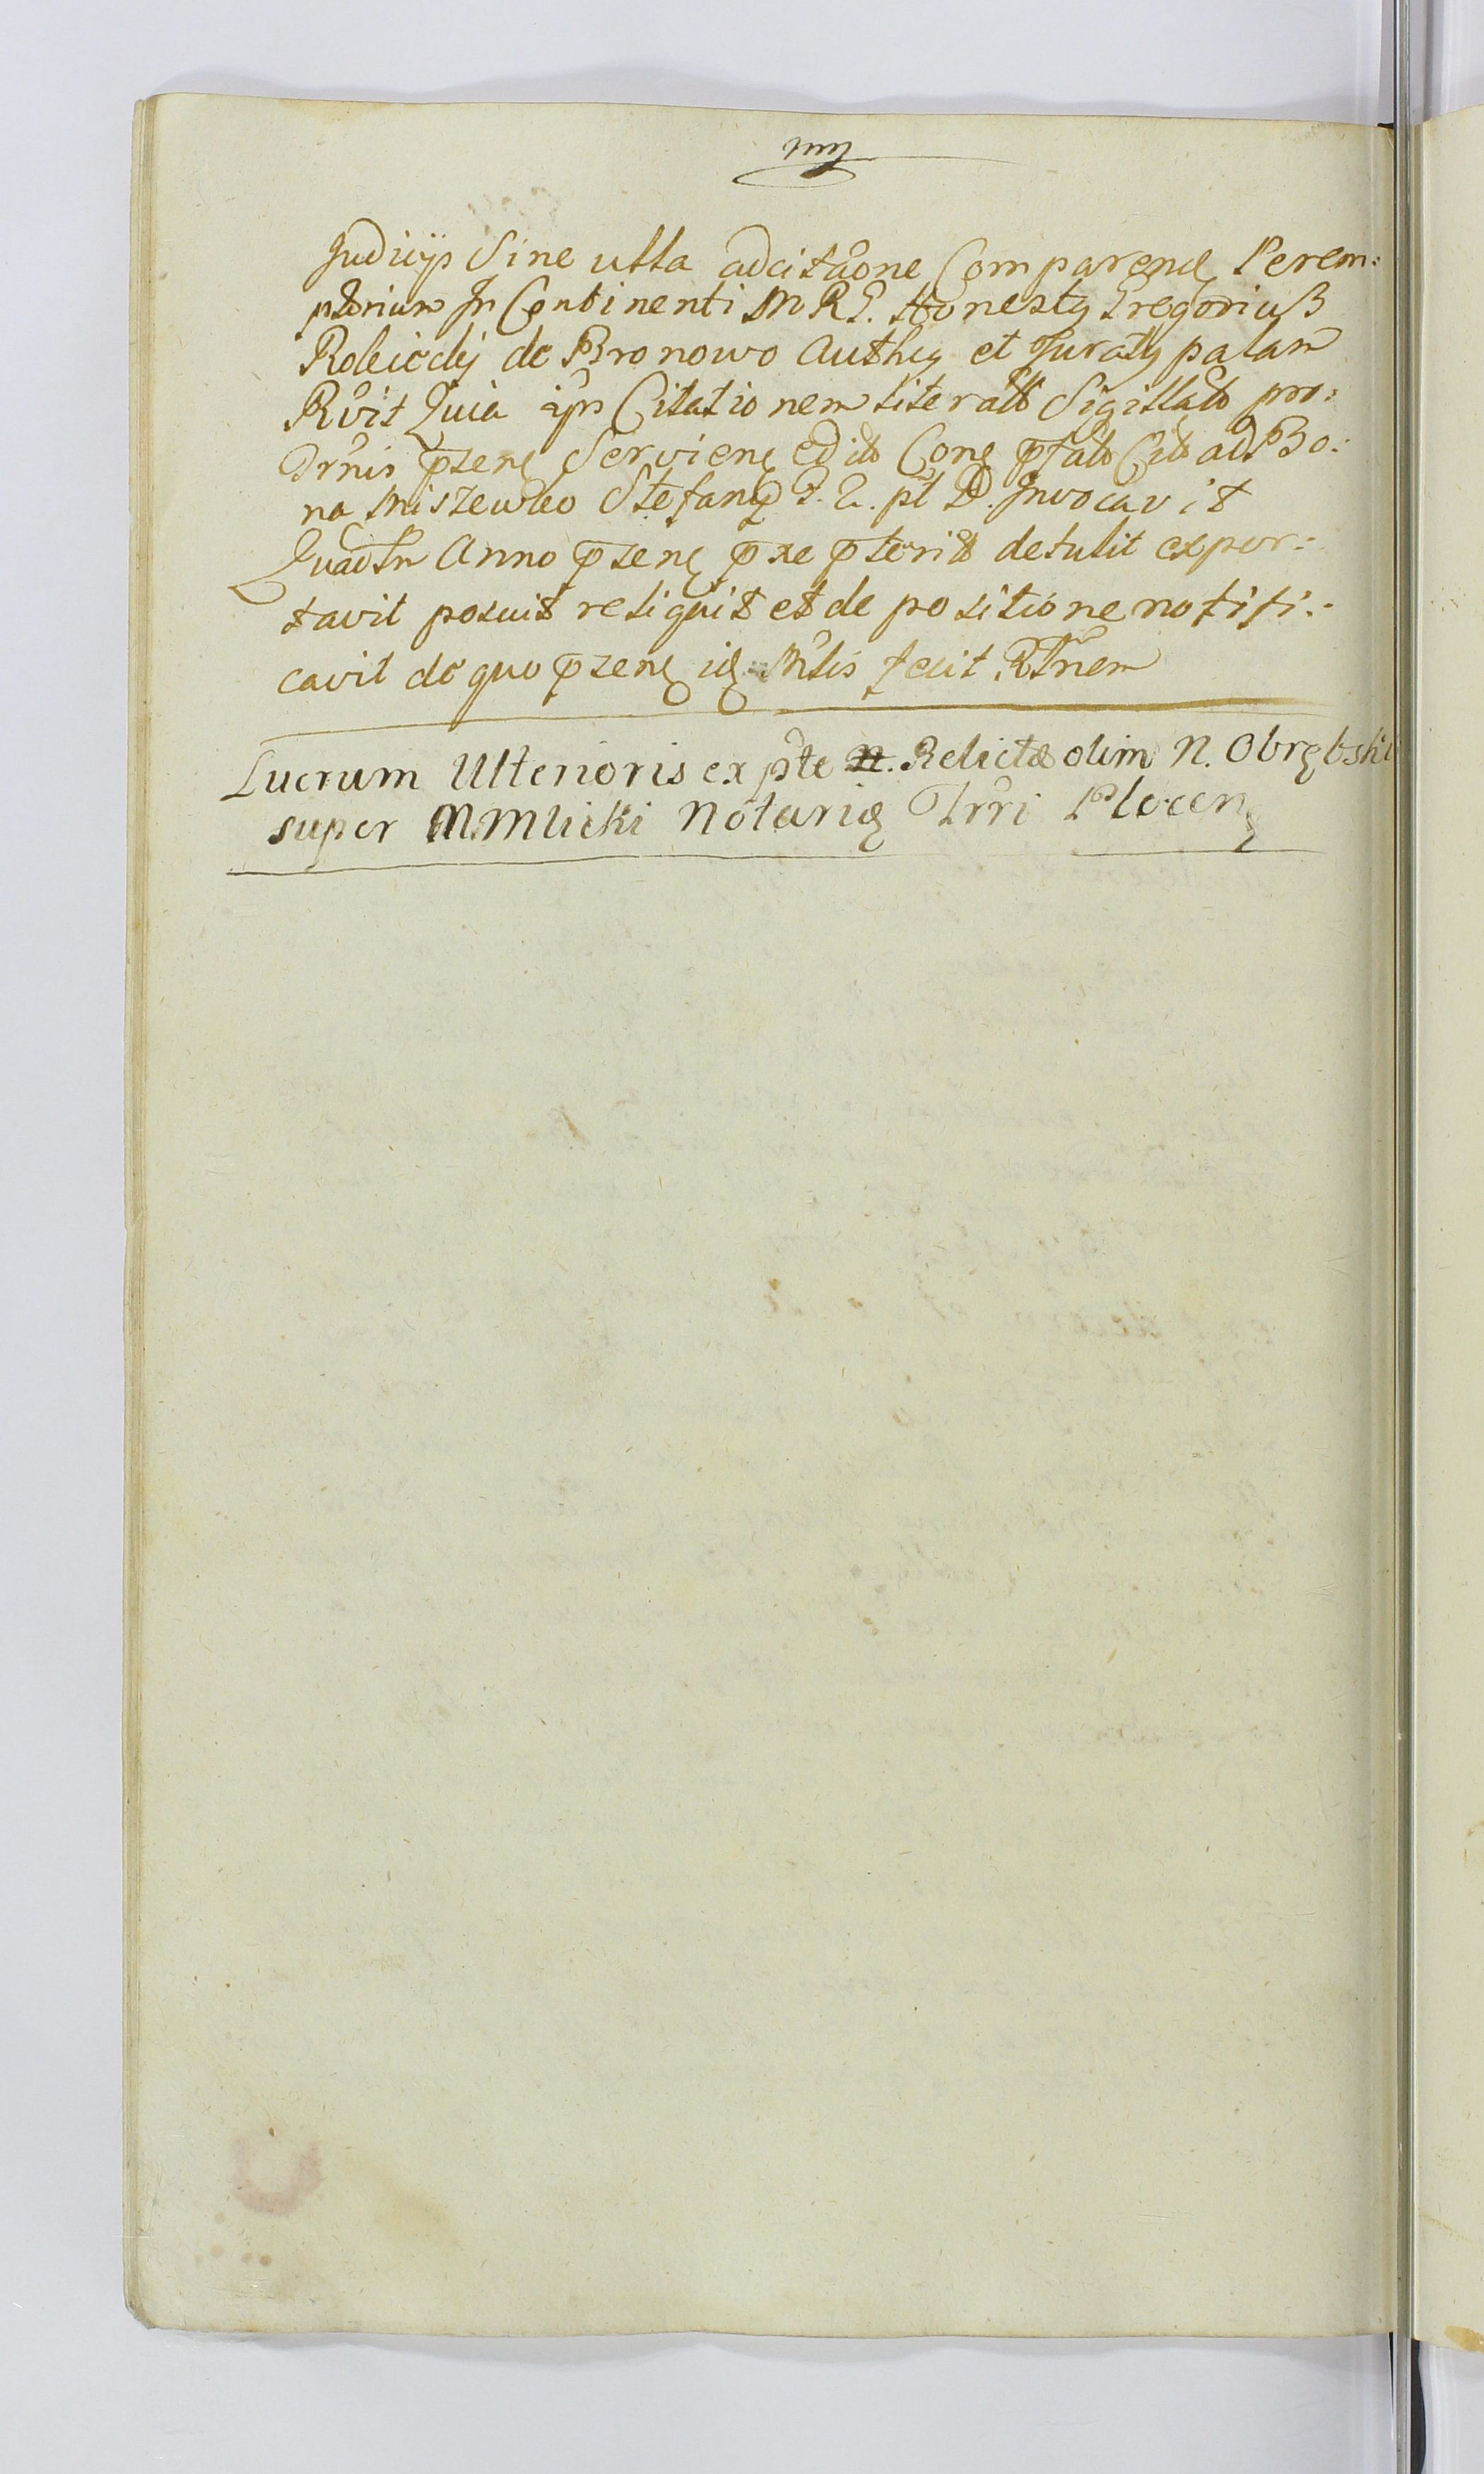 Judicijs Sine ulla adcitaone Comparenᶒ Perem:
ptorium In Continenti M R G. Honestꝯ Gregoriuß
de Bronowo Authꝯ et Juratꝯ palam
Rvit Quia ips Citationem literalt Sigillalt pro:
prnis pzenᶒ Servienᶒ edit Conᶒ pfalt Cit ad Bo:
na Miszewko Stefanꝯ pt D. Invocavit
Quadtr Anno pzenᶒ pxe pterit detulit expor:
tavit posuit reliquit et de positione notifi:
cavit de quo pzenᶒ idꝫ Mtis fecit Rtnem
Lucrum Ulterioris ex pte N. Relictæ olim N. Obrębski
super M Mlicki Notariꝯ Trri Plocenᶒ